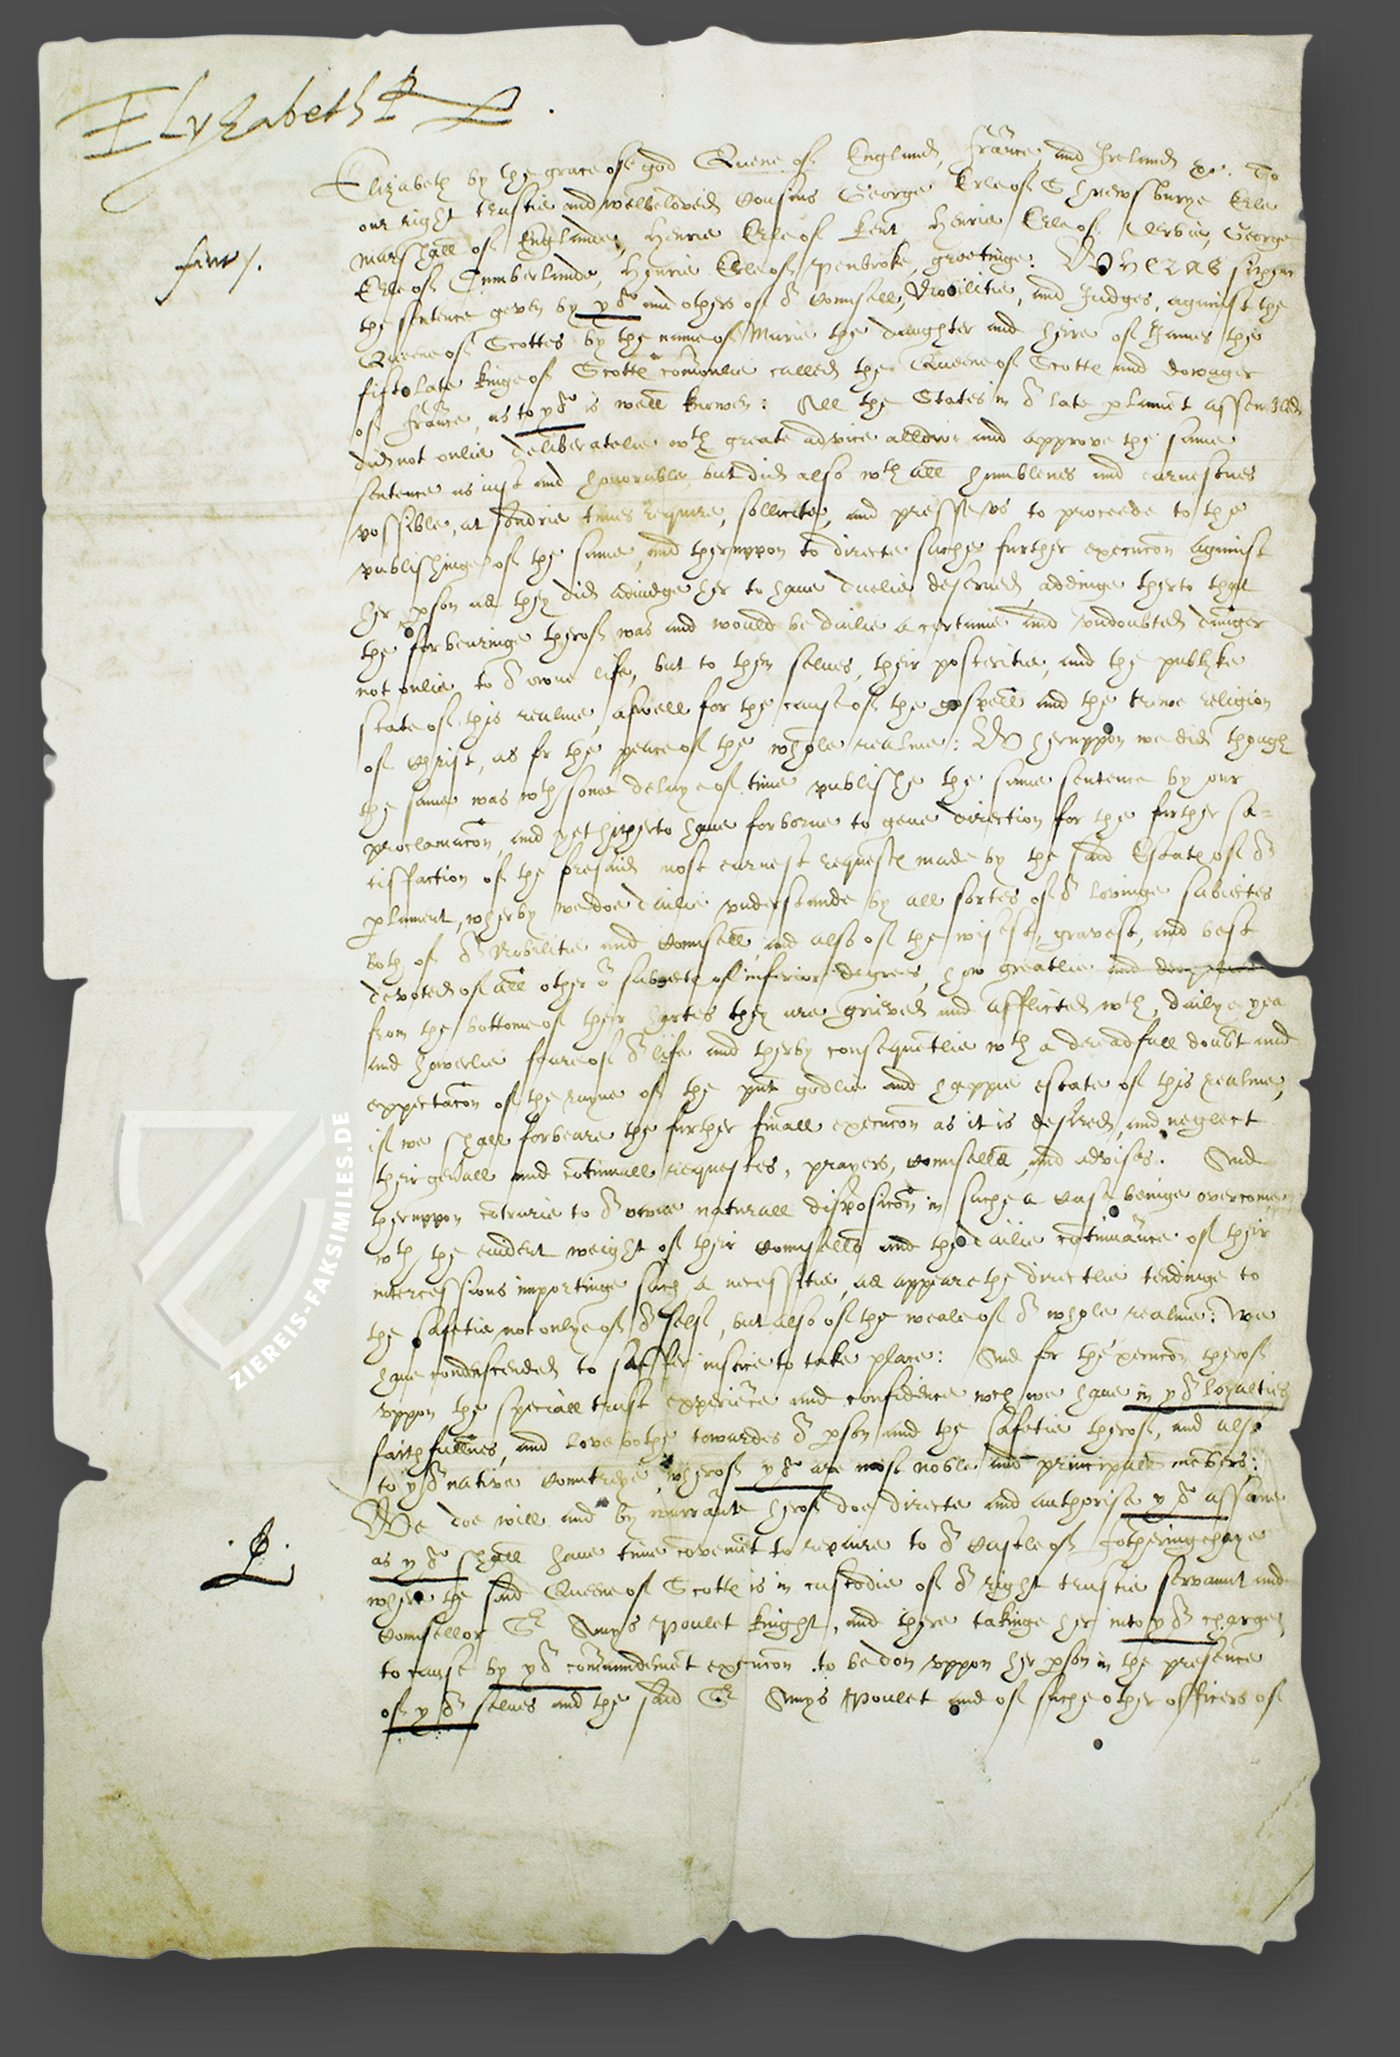 Elizabeth R
Elizabeth by the grace of god Quene of England, Frãnce, and Ireland &c. To
our right trustie and welbeloved Cousins George Erle of Shrewsburye Erle
marshall of Englande, Henrie Erle of Kent Henrie Erle of Derbie, George
Erle of Cumberlande, Henrie Erle of Penbroke, greetinge: Wheras sithen
the sentence geven by yow and others of oʳ Counsell, Nobilitie, and Judges, against the
Queene of Scottes by the name of Marie the daughter and heire of James the
fift late kinge of Scottℯ comonlie called the Queene of Scottℯ and dowager
of Frãnce, as to yow is well knowen: All the States in oʳ late plament assembled
did not onlie deliberatelie wᵗʰ greate advice allowe and approve the same
sentence as iust and honorable but did also wᵗʰ all humblenes and earnestnes
possible, at sondrie times require, sollicite, and presse vs to proceede to the
publishinge of the same, and theruppon to directe suche further execucõn against
her pson as they did adiudge her to haue duelie deserued, addinge therto that
the forbearinge therof was and would be dailie a certaine and vndoubted danger
not onlie to oʳ owne life, but to them selues, their posteritie, and the publyke
state of this realme, aswell for the cause of the gospell and the trewe religion
of Christ, as for the peace of the whole realme: Wheruppon we did though
the same was wᵗʰ some delaye of time publishe the same sentence by our
proclamacõn, and yet hitherto haue forborne to geue direction for the further sa-
tisfaction of the foresaid most earnest requestℯ made by the said Estatℯ of oʳ
plament, wherby we doe dailie vnderstande by all sortes of oʳ lovinge subiectes
both of oʳ Nobilitie and Counsell, and also of the wisest, gravest, and best
devoted of all other oʳ subiectℯ of inferior degrees, how greatlie and deeplie
from the bottome of their hartes they are grieved and afflicted wᵗʰ, dailye yea
and howrelie feare of oʳ life and therby consequẽtlie wᵗʰ a dreadfull doubt and
expectacõn of the ruyne of the pnt godlie and happie estate of this realme,
if we shall forbeare the further finall execucõn as it is desired, and neglect
their genall and cõtinuall requestes, prayers, counsells, and advises. And
theruppon cõtrarie to oʳ owne naturall disposicõn in suche a case beinge overcomen
wᵗʰ the euident weight of their counsells and the dailie cõtinuãnce of their
intercessions importinge such a necessitie, as appeareth directlie tendinge to
the safetie not onlye of oʳ self, but also of the weale of oʳ whole realme: We
haue condescended to suffer iustice to take place: And for thexecucõn therof
vppon the speciall trust experiẽce and confidence wch we haue in yoʳ loyalties
faithfullnes, and love bothe towardes oʳ pson and the safetie therof, and also
to yoʳ native countreye wherof yow are most noble and principall mẽbers:
We doe will and by warrãnte herof doe directe and authorise yow assone
as yow shall haue time cõvenient to repaire to oʳ Castle of Fotheringehaye
where the said Queene of Scottℯ is in custodie of oʳ right trustie servannt and
counsellor Sʳ Amys Poulet knight, and there takinge her into yoʳ charge,
to cause by yoʳ comaundemẽt execucõn to be don vppon her pson in the presence
of yoʳ selues and the said Sʳ Amys Poulet and of suche other officers of
ZIEREIS-FAKSIMILES.DE